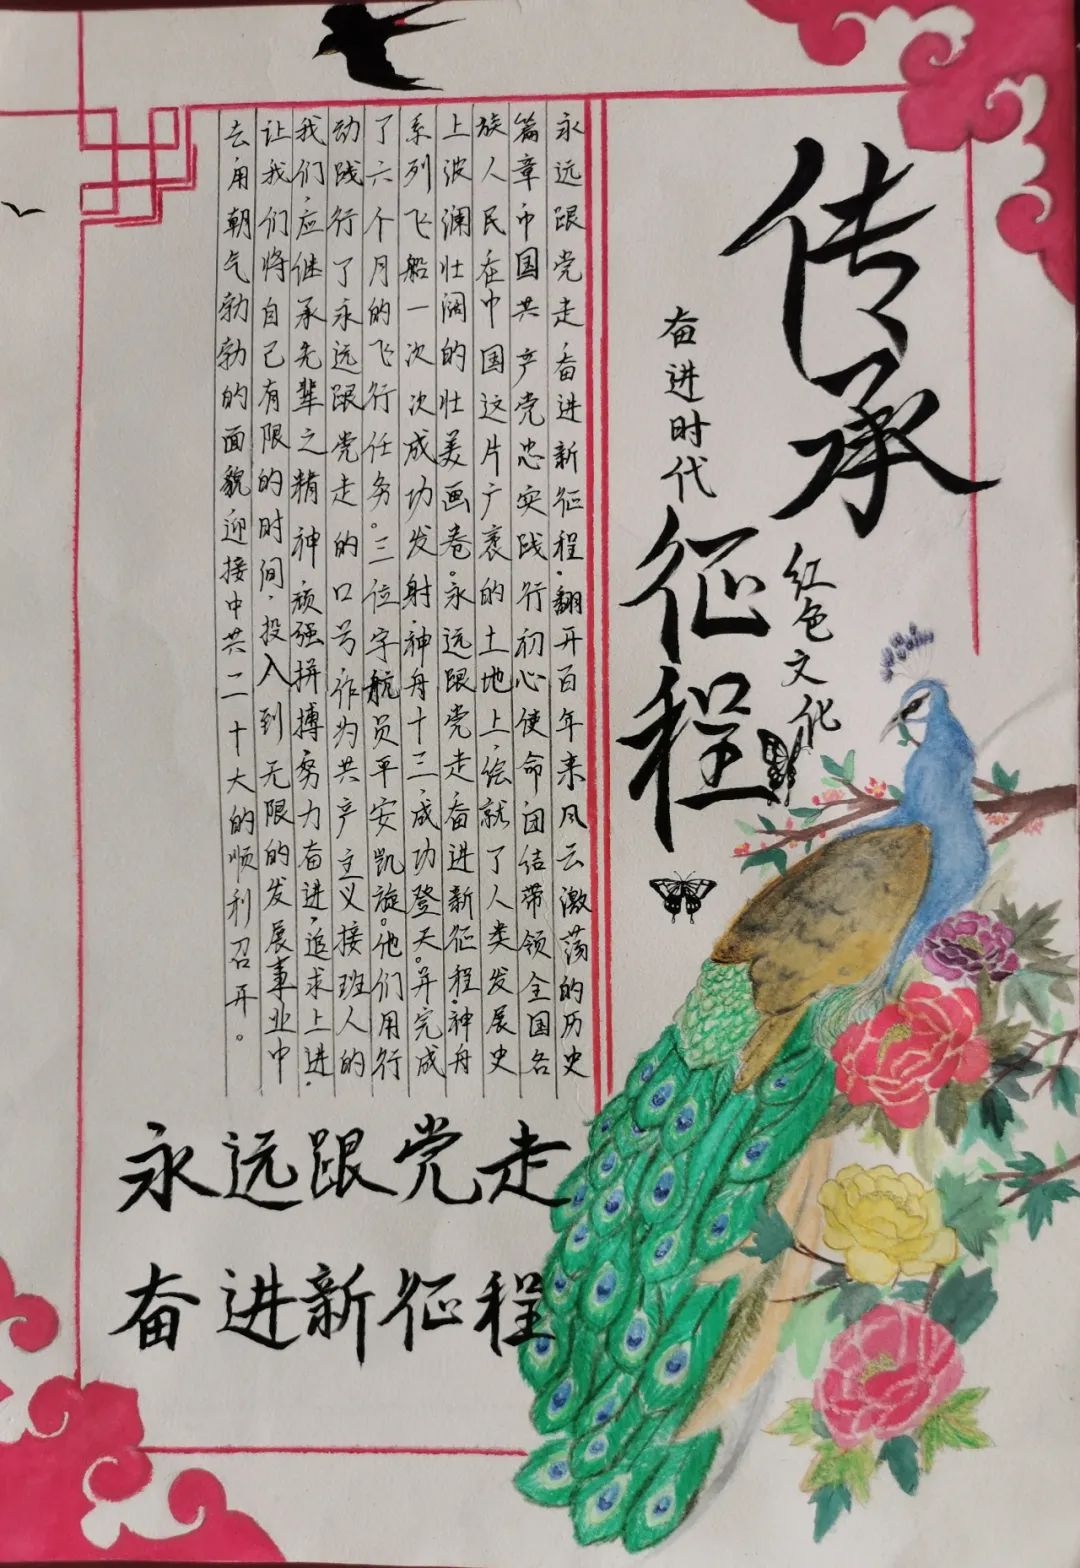 传承
红色文化
奋进时代
征程
永远跟党走,奋进新征程.翻开百年来风云激荡的历史
篇章,中国共产党忠实践行初心使命团结带领全国各
族人民在中国这片广袤的土地上,绘就了人类发展史
上波澜壮阔的壮美画卷。永远跟党走奋进新征程,神舟
系列飞船一次次成功发射,神舟十三,成功登天。并完成
了六个月的飞行任务。三位宇航员平安凯旋。他们用行
动践行了永远跟党走的口号作为共产主义接班人的
我们,应继承先辈之精神顽强拼搏,努力奋进,追求上进,
让我们将自己有限的时间,投入到无限的发展事业中
去用朝气勃勃的面貌迎接中共二十大的顺利召开。
永远跟党走
奋进新征程